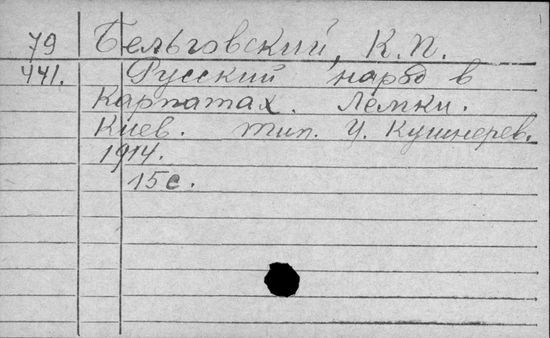 79 Бельговский, К.П.
441. Русский народ в
Карпатах. Лемки.
Киев. тип. И. Кушнерев.
1914.
15 с.